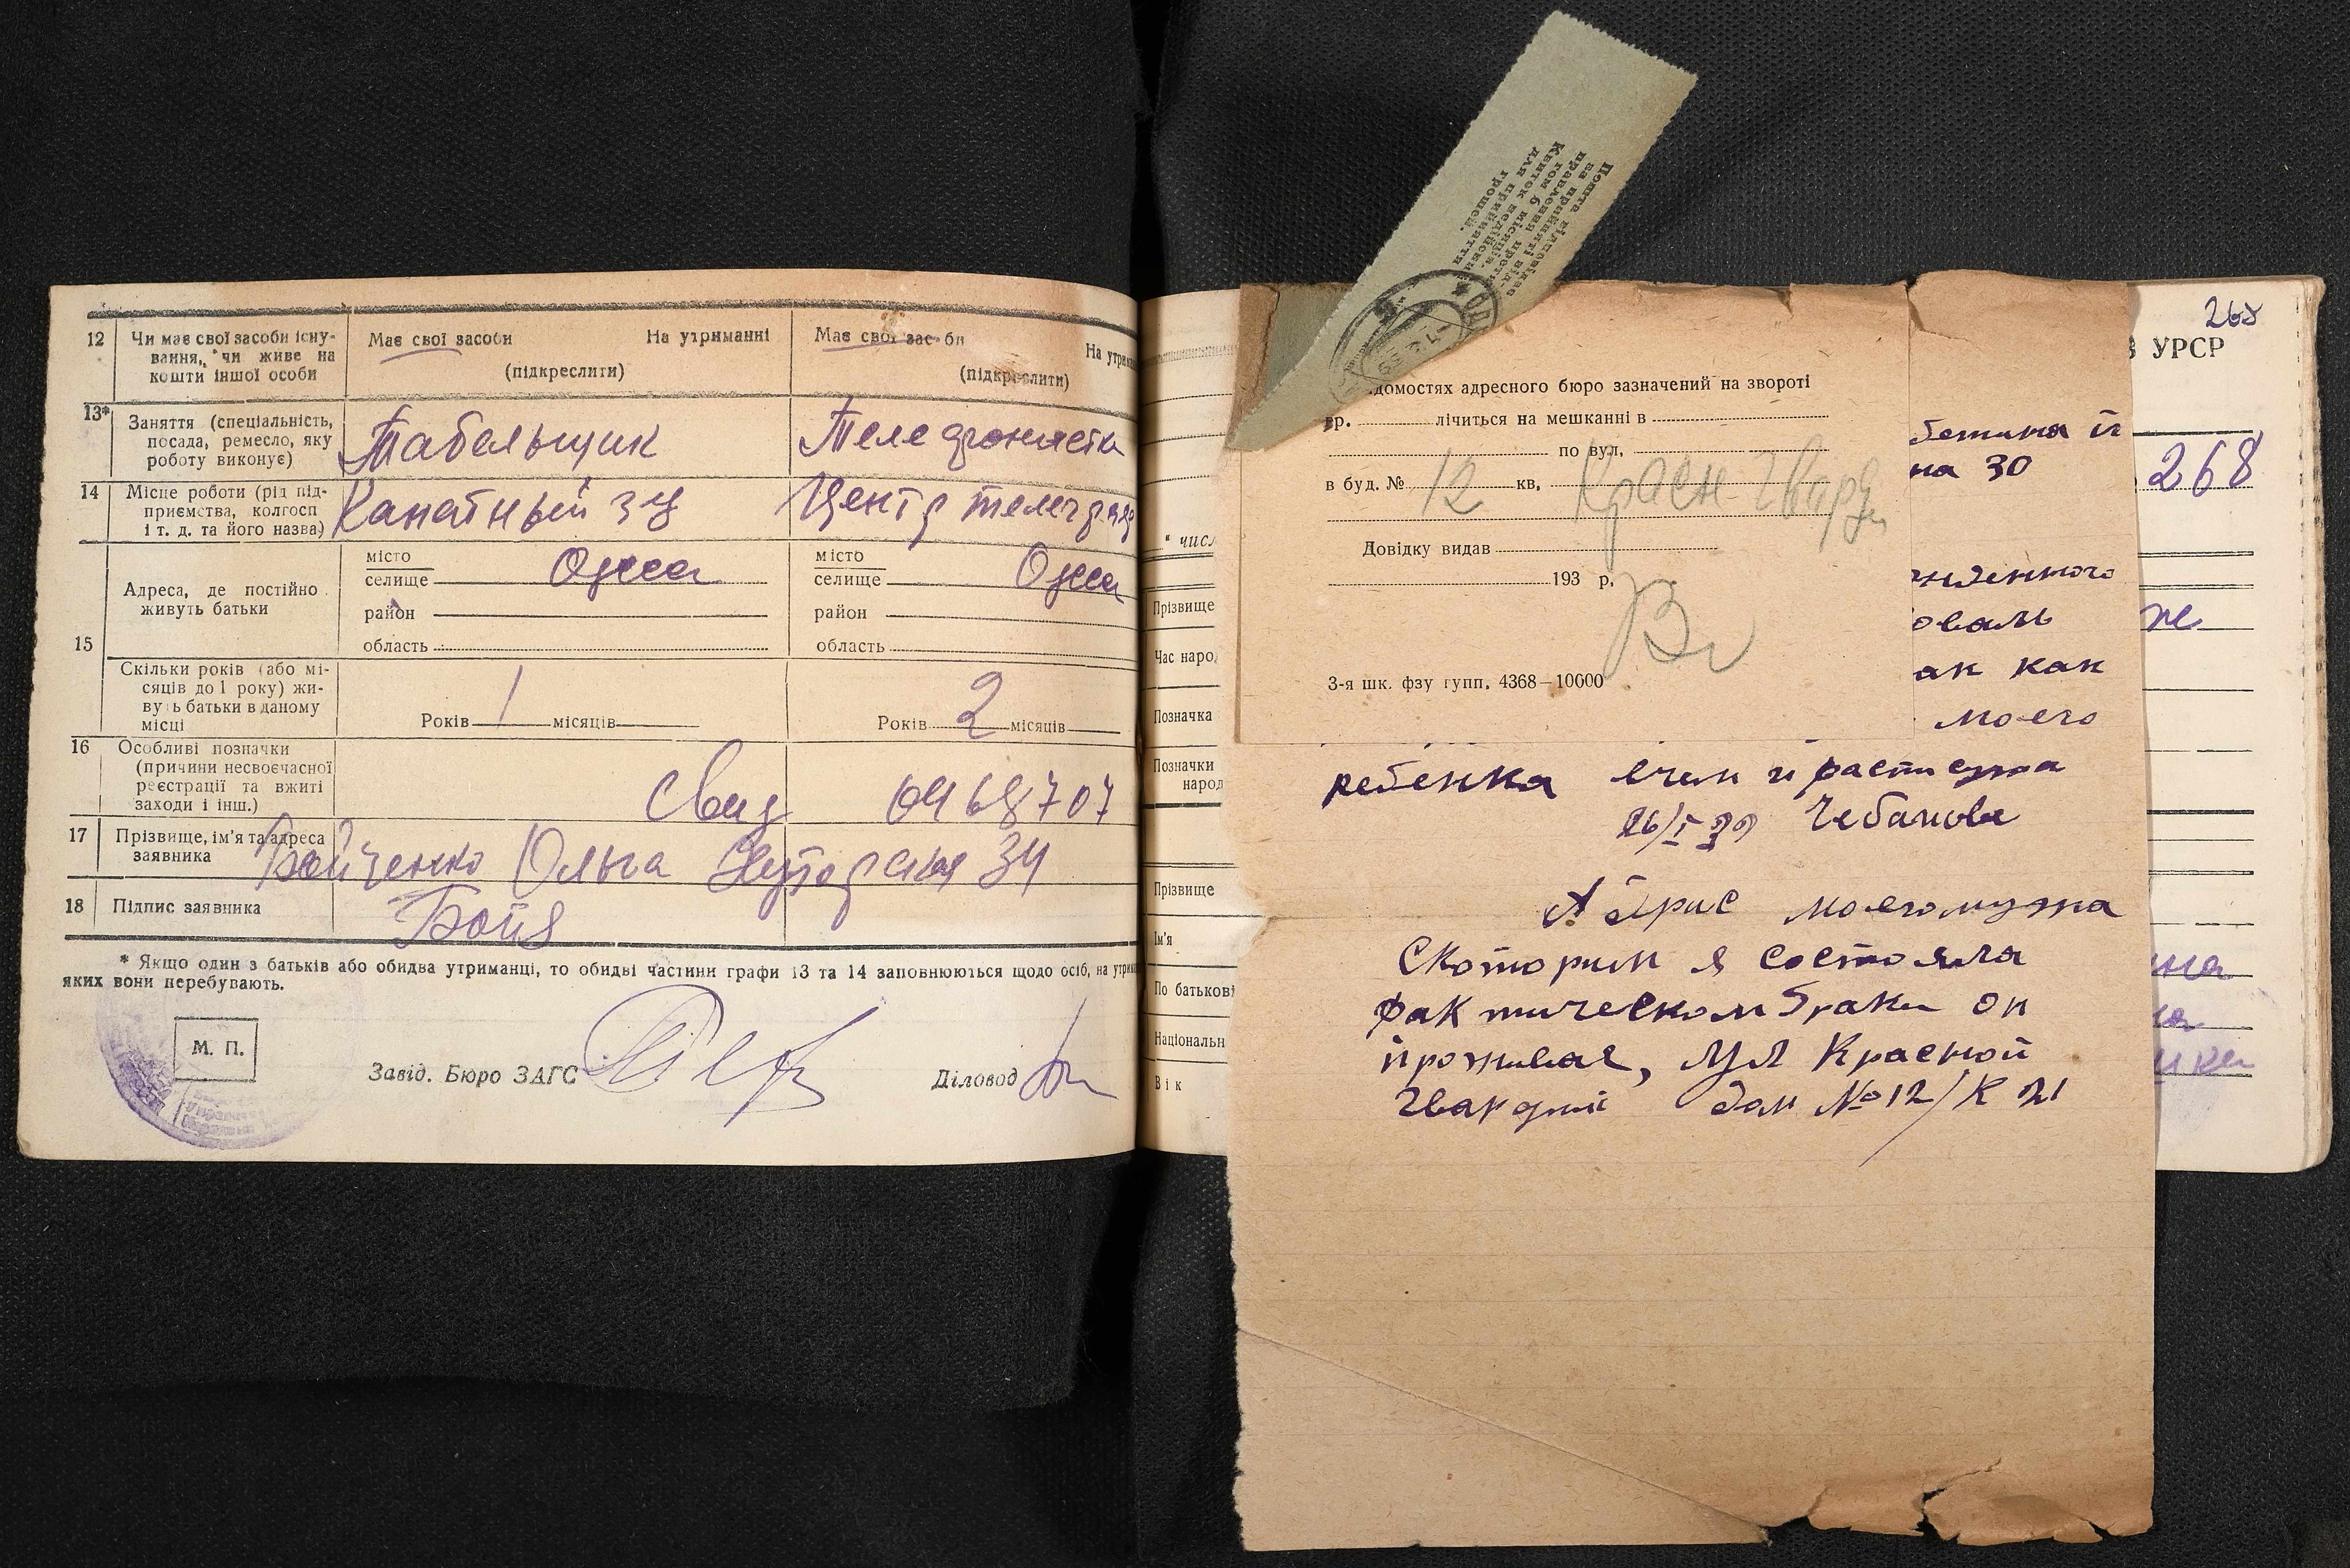 12 Чи має свої засоби існу-
вання, чи живе на
кошти іншої особи
Має свої засоби На утриманні
(підкреслити)
Має свої зас би
На утрим
(підкреслити)
13* Заняття (спеціальність,
посада, ремесло, яку
роботу виконує)
Табельщик
Телефонистк
14 Місце роботи (рід під-
приємства, колгосп
і т. д. та його назва)
Канатный з-д
Центр телегр
15 Адреса, де постійно
живуть батьки
місто
селище Одесса
район
область
місто
селище Одесса
район
область
Скільки років (або мі-
сяців до 1 року) жи-
вуть батьки в даному
місці
Років 1 місяців
Років 2 місяців
16 Особливі позначки
(причини несвоєчасної
реєстрації та вжиті
заходи і інш.)
Свид
17 Прізвище, ім'я та адреса
заявника
Бойченко Ольга Хуторская 34
18 Підпис заявника
Бойч
* Якщо один з батьків або обидва утриманці, то обидві частини графи 13 та 14 заповнюються щодо осіб, на утрим
яких вони перебувають.
М. П.
Завід. Бюро ЗАГС
Діловод
Пошта відповідає
за прийняті від-
правлення про-
тягом 6 місяців.
Квиток недійсний
для прийняття
грошей.
домостях адресного бюро зазначений на звороті
гр. лічиться на мешканні в
по вул.
в буд. № 12 кв. Красн Гвард
Довідку видав
193 р.
3-я шк. фзу гупп. 4368—10000
268
УРСР
на 30
268
" числ
Прізвище
Час наро
Позначка
Позначки
народ
Прізвище
Ім'я
По батькові
Національн
Вік
ак как
моего
ребенка
26/I 39 Чебанова
Адрис моего мужа
скоторим я состояла
фактическом браки он
проживае, Ул Красной
Гвардии дом №12/К 21